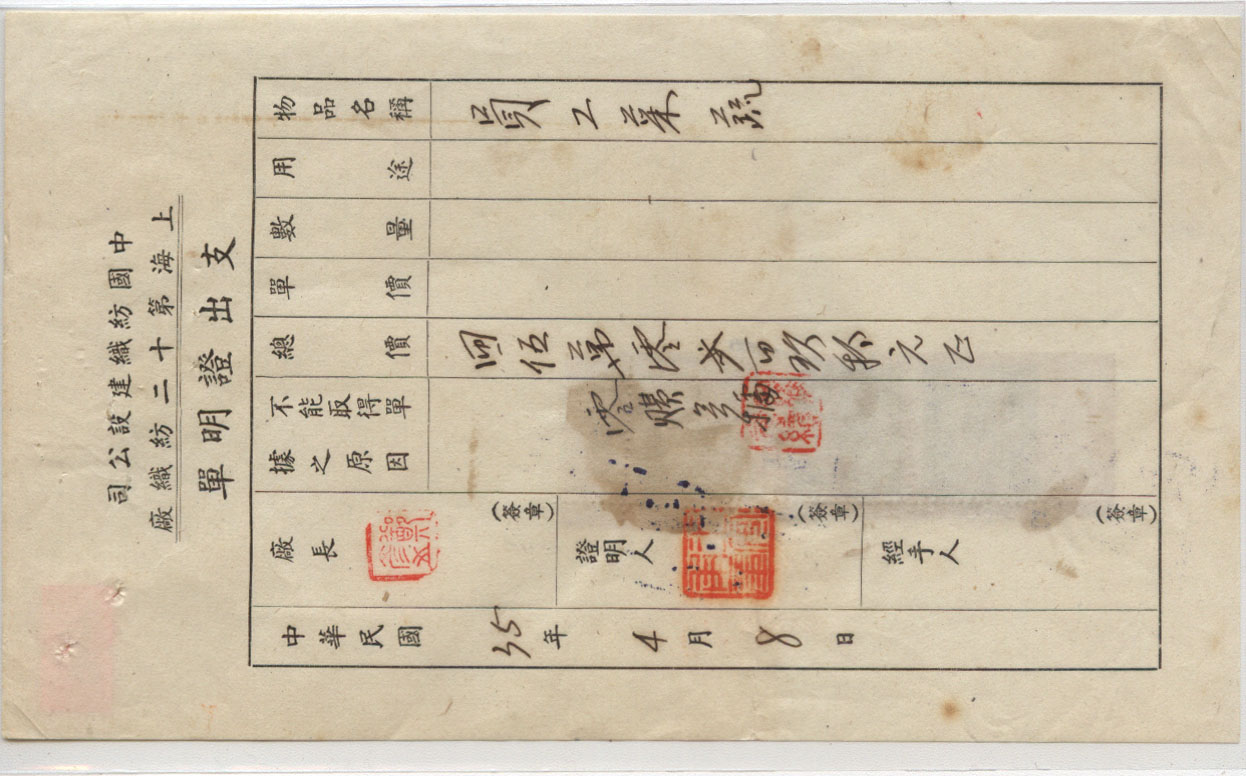 中國紡織建設公司
上海第十二紡織廠
支出證明單
物品名稱 員工菜蔬
用途
數量
單價
總價 伍萬零百玖拾元正
不能取得單據之原因 零購
廠長 (簽章)
證明人 (簽章)
經手人 (簽章)
中華民國 35年 4月 8日